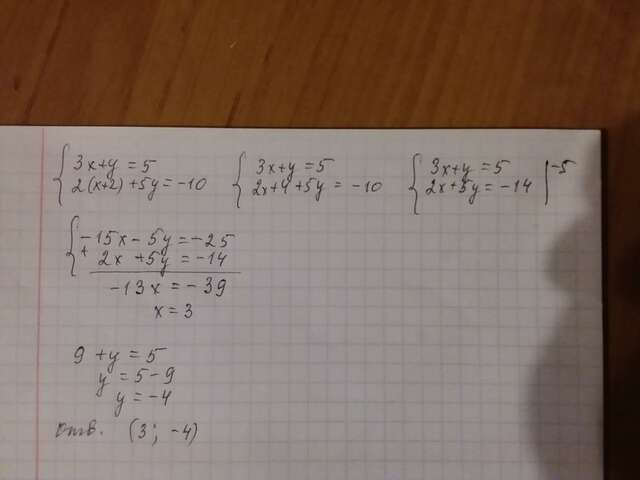 3x+y=5 3x+y=5 3x+y=5 |-5
2(x+2)+5y=-10 2x+4+5y=-10 2x+5y=-14
-15x-5y=-25
+ 2x+5y=-14
-13x=-39
x=3
9+y=5
y=5-9
y=-4
Отв. (3; -4)